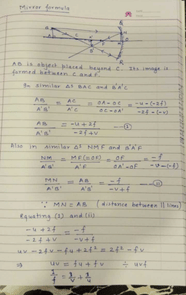 Mirror formula
AB is object placed beyond C. Its image is
formed between C and F.
In similar Δs BAC and B'A'C
AB/A'B' = AC/A'C = OA-OC/OC-OA' = -u-(-2f)/-2f-(-v)
AB/A'B' = -u+2f/-2f+v
Also in similar Δs NMF and B'A'F
NM/A'B' = MF(≈OF)/A'F = OF/OA'-OF = -f/-v-(-f)
MN/A'B' = AB/A'B' = -f/-v+f
∵ MN = AB (distance between || lines)
Equating (i) and (ii)
-u+2f/-2f+v = -f/-v+f
uv-2fv-fu+2f² = 2f²-fv
⇒ uv = fu+fv ÷ uvf
1/f = 1/v+1/u